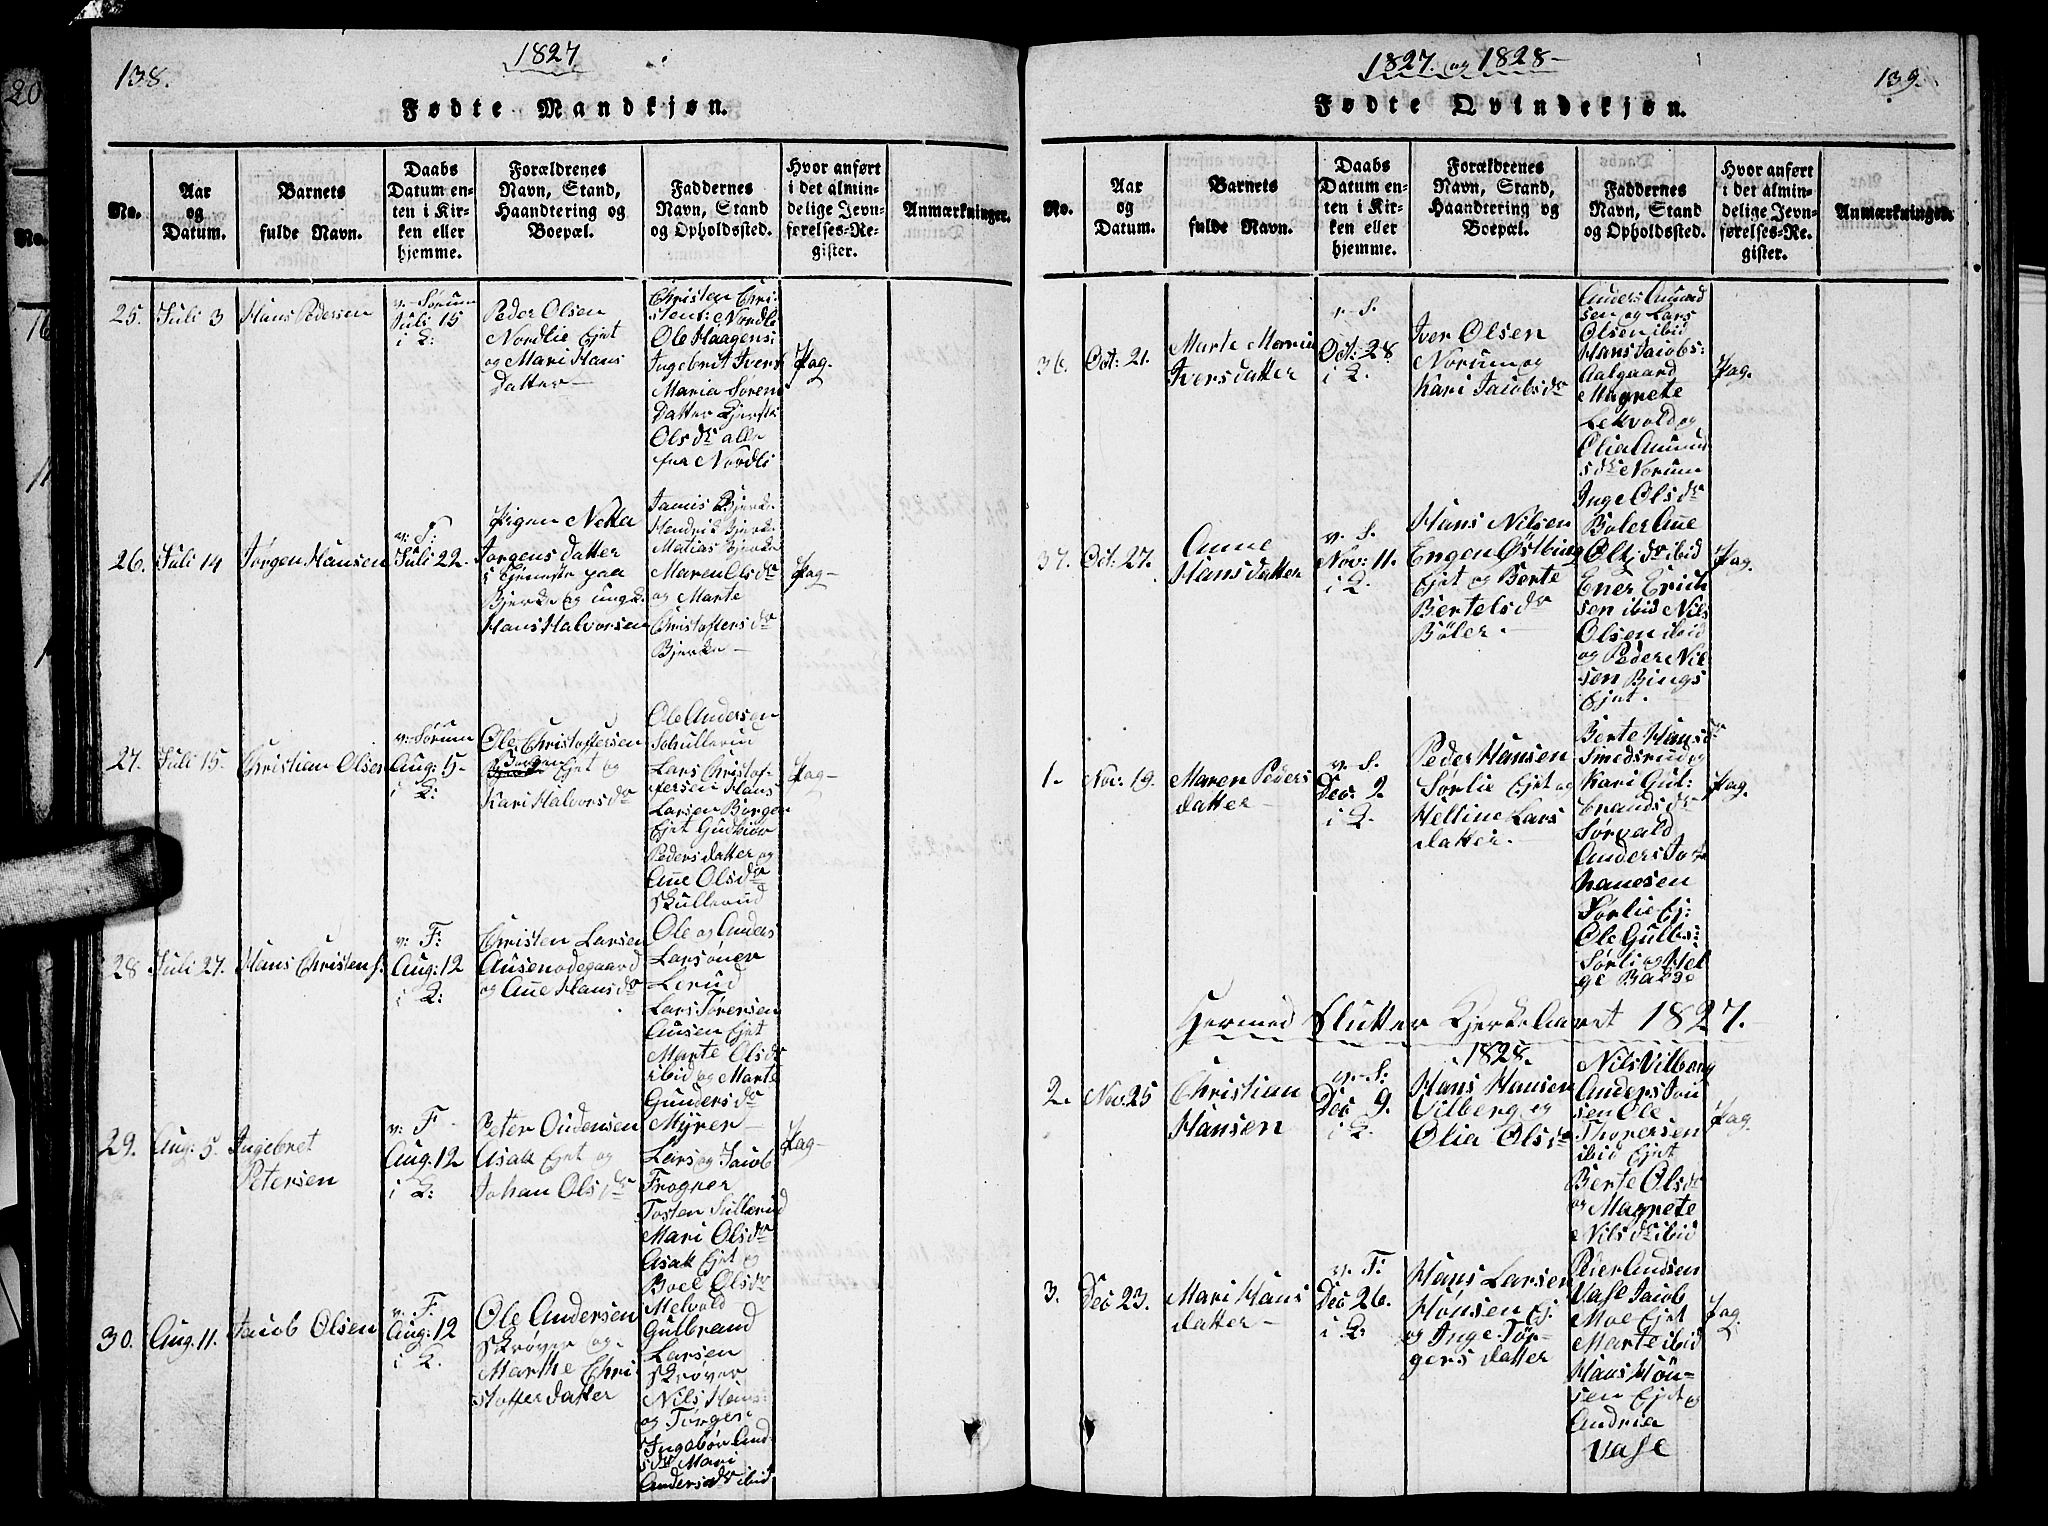 138.
1827
Fødte Mandkjøn.
No.
Aar
og
Datum.
Barnets
fulde Navn.
Daabs
Datum en-
ten i Kir-
ken eller
hjemme.
Forældrenes
Navn, Stand,
Haandtering og
Boepæl.
Faddernes
Navn, Stand
og Opholdssted.
Hvor anført
i det almin-
delige Jevn-
førelses-Re-
gister.
Anmærkninger.
25.
Juli 3
Hans Pedersen
v. Sørum
Juli 15
i K:
Peder Olsen
Nordlie Ejet
og Mari Hans
Datter
Christen Chri-
stens: Nordli
Ole Haagens:
Ingebrit Ivers
Maria Sørens
Datter Kjersti
Ols dr alle
fra Nordli
Pag.
26.
Juli 14
Jørgen Hansen
v: S:
Juli 22.
Pigen Netta
Jørgens datter
i tjeneste paa
Bjerke og ungk.
Hans Halvorsen
Bjerke
Hendrik Bjerke
Matias Bjerke
Maren Ols dr
og Marte
Christoffers dr
Bjerke
Pag
27.
Juli 15.
Christian Olsen
v: Sørum
Aug: 5
i K:
Ole Christoffersen
Borgen Ejet og
Kari Halvors dr
Ole Andersen
Schullerud
Lars Christof-
fersen Hans
Larsen Borgen
Ejet Gudbior
Peders datter og
Ane Ols dr
Skullerud
Pag
28
Juli 27.
Hans Christens:
v: F:
Aug: 12
i K:
Christen Larsen
Ausenodegaard
og Ane Hans dr
Ole og Anders
Larsøner
Lerud
Lars Tørensen
Ausen Ejet
Marte Ols dr
ibid og Marte
Gunders dr
Myrer
29.
Aug: 5.
Ingebret
Petersen
v: F
Aug. 12
i K:
Peter Oudensen
Asak Ejet og
Johan Ols dr
Lars og Jacob
Frogner
Tosten Sullerud
Mari Ols dr
Asak Ejet og
Boel Ols dr
Melvold
Pag
30.
Aug. 11.
Jacob Olsen
v. F.
Aug: 12
i K.
Ole Andersen
Skrøver og
Marthe Chri
stoffer datter
Gulbrand
Larsen
Skrøver
Nils Hans:
og Jørgen
Ingebør And
s dr Mari
Anders dr ibid
1827. og 1828
139.
Fødte Qvindekjøn.
No.
Aar
og
Datum.
Barnets
fulde Navn.
Daabs
Datum en-
ten i Kir-
ken eller
hjemme.
Forældrenes
Navn, Stand,
Haandtering og
Boepæl.
Faddernes
Navn, Stand
og Opholdssted.
Hvor anført
i det almin-
delige Jevn-
førelses-Re-
gister.
Anmærkninger.
36.
Oct: 21.
Marte Maria
Ivers datter
v. S.
Oct: 28
i K.
Iver Olsen
Norum og
Kari Jacobs dr
Anders Amund
sen og Lars
Olsen ibid
Hans Jacobs:
Aalgaard
Magrete
Lekvold og
Olia Amund
s dr Norum
Pag.
37.
Oct: 27.
Anne
Hans datter
v. S.
Nov: 11.
i K.
Hans Nilsen
Engen Østbing
Ejet og Berte
Bertels dr
Bøler.
Inge Ols dr
Bøler Ane
Ols dr ibid
Ener Erich
sen ibid Nils
Olsen ibid
og Peder Nil-
sen Bings
Ejet.
Pag.
1.
Nov: 19.
Maren Peders
datter
v. S.
Dec: 2.
i K.
Peder Hansen
Sørlie Ejet og
Helline Lars
datter.
Berte Hans dr
Smedsrud og
Kari Gul:
brands dr
Sørvald
Anders Jo-
hanesen
Sørlie Ej:
Ole Gulbs:
Sørli og Hel
ge Balse
Pag.
Hermed Slutter Kjerkeaaret 1827.
1828.
2.
Nov. 25
Christian
Hansen
v. S:
Dec 9.
i K.
Hans Hansen
Vilberg og
Olia Ols dr
Nils Vilberg
Anders Jon
sen Ole
Thorersen
ibid Ejet
Berte Ols dr
og Magrete
Nils dr ibid
Pag.
3.
Dec 23.
Mari Hans
datter
v. F:
Dec 26.
i K:
Hans Larsen
Hønsen Ej.
og Inge Tør-
gers datter
Peder Andsen
Vase Jacob
Moe Ejet
Marte ibid
Hans Høn-
sen Ejet og
Andria
Vase
Pag.